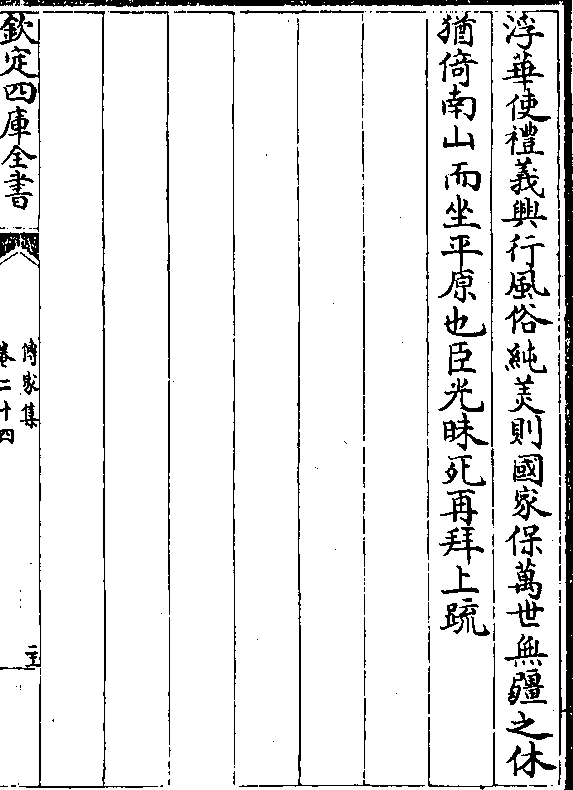 浮華使禮義興行風俗純羙則國家保萬世無疆之休
猶倚南山而坐平原也臣光昧死再拜上䟽
欽定四庫全書
傳家集
卷二十四